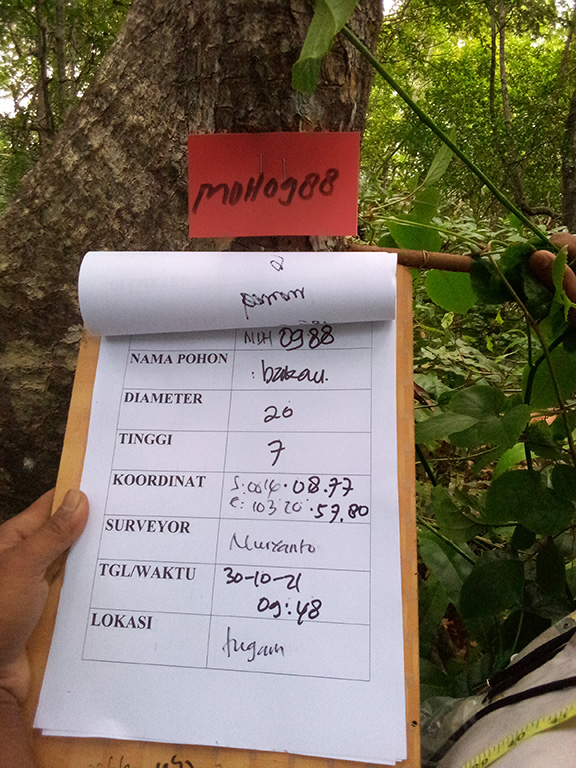 MDH0988
MDH 0988
NAMA POHON : bakau.
DIAMETER 20
TINGGI 7
KOORDINAT S: 0014.08.77
E: 103 20.57,80
SURVEYOR Nuryanto
TGL/WAKTU 30-10-21
09:48
LOKASI